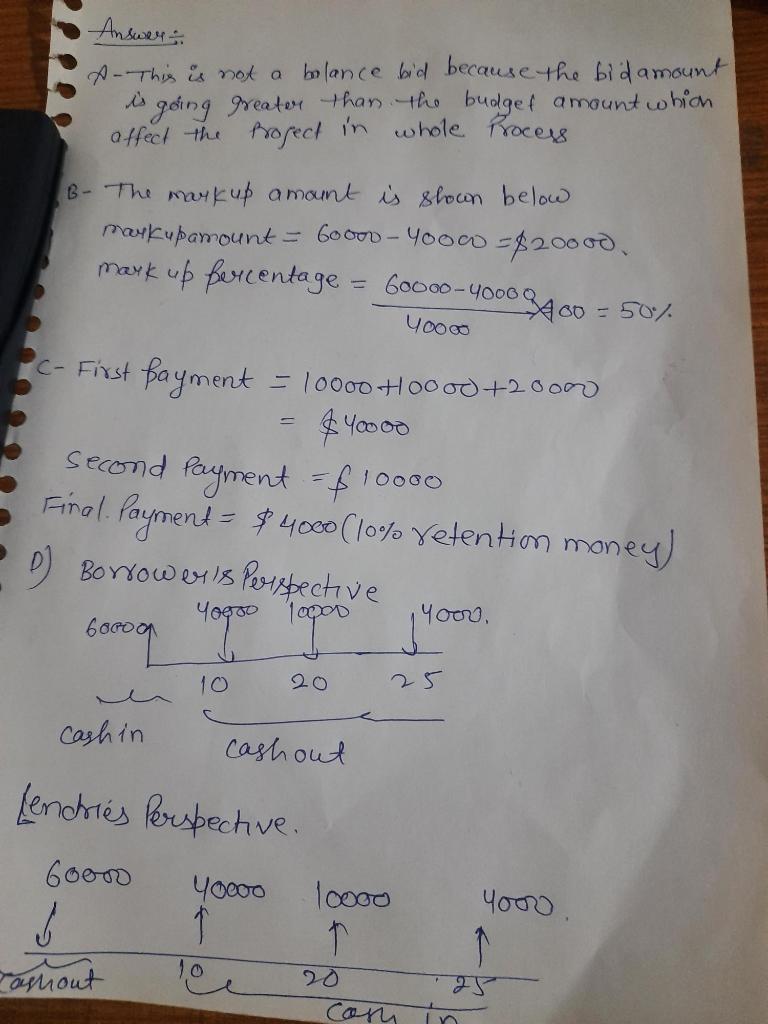 Answer :-
A- This is not a balance bid because the bid amount
is going greater than the budget amount which
affect the Project in whole Process
B- The markup amount is shown below
markupamount = 60000-40000 =$20000.
mark up percentage = 60000-40000 ×100 = 50%
40000
C- First payment = 10000+10000+20000
= $40000
Second Payment = $10000
Final. Payment = $4000 (10% retention money)
D) Borrower's Perspective
60000 40000 10000 4000.
10 20 25
Cash in
Cash out
Perspective.
60000 40000 10000 4000.
10 20 25
Cashout
Cash in